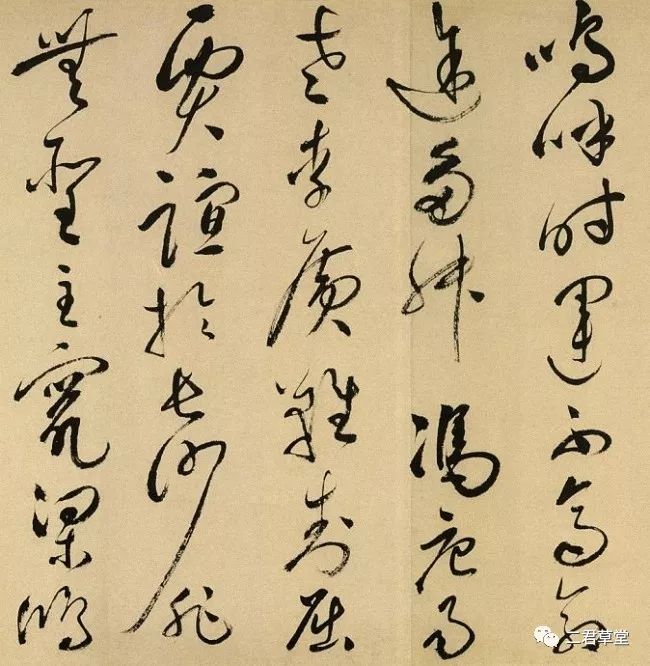 嗚呼時運不齊命
途多舛馮唐易
老李廣難封屈
賈誼於長沙非
無聖主竄梁鴻
二君草堂